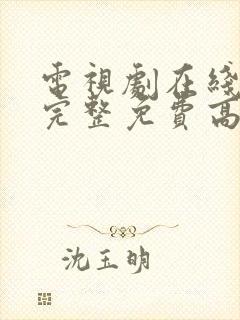 電視劇在綫
完整免費高
沈玉明